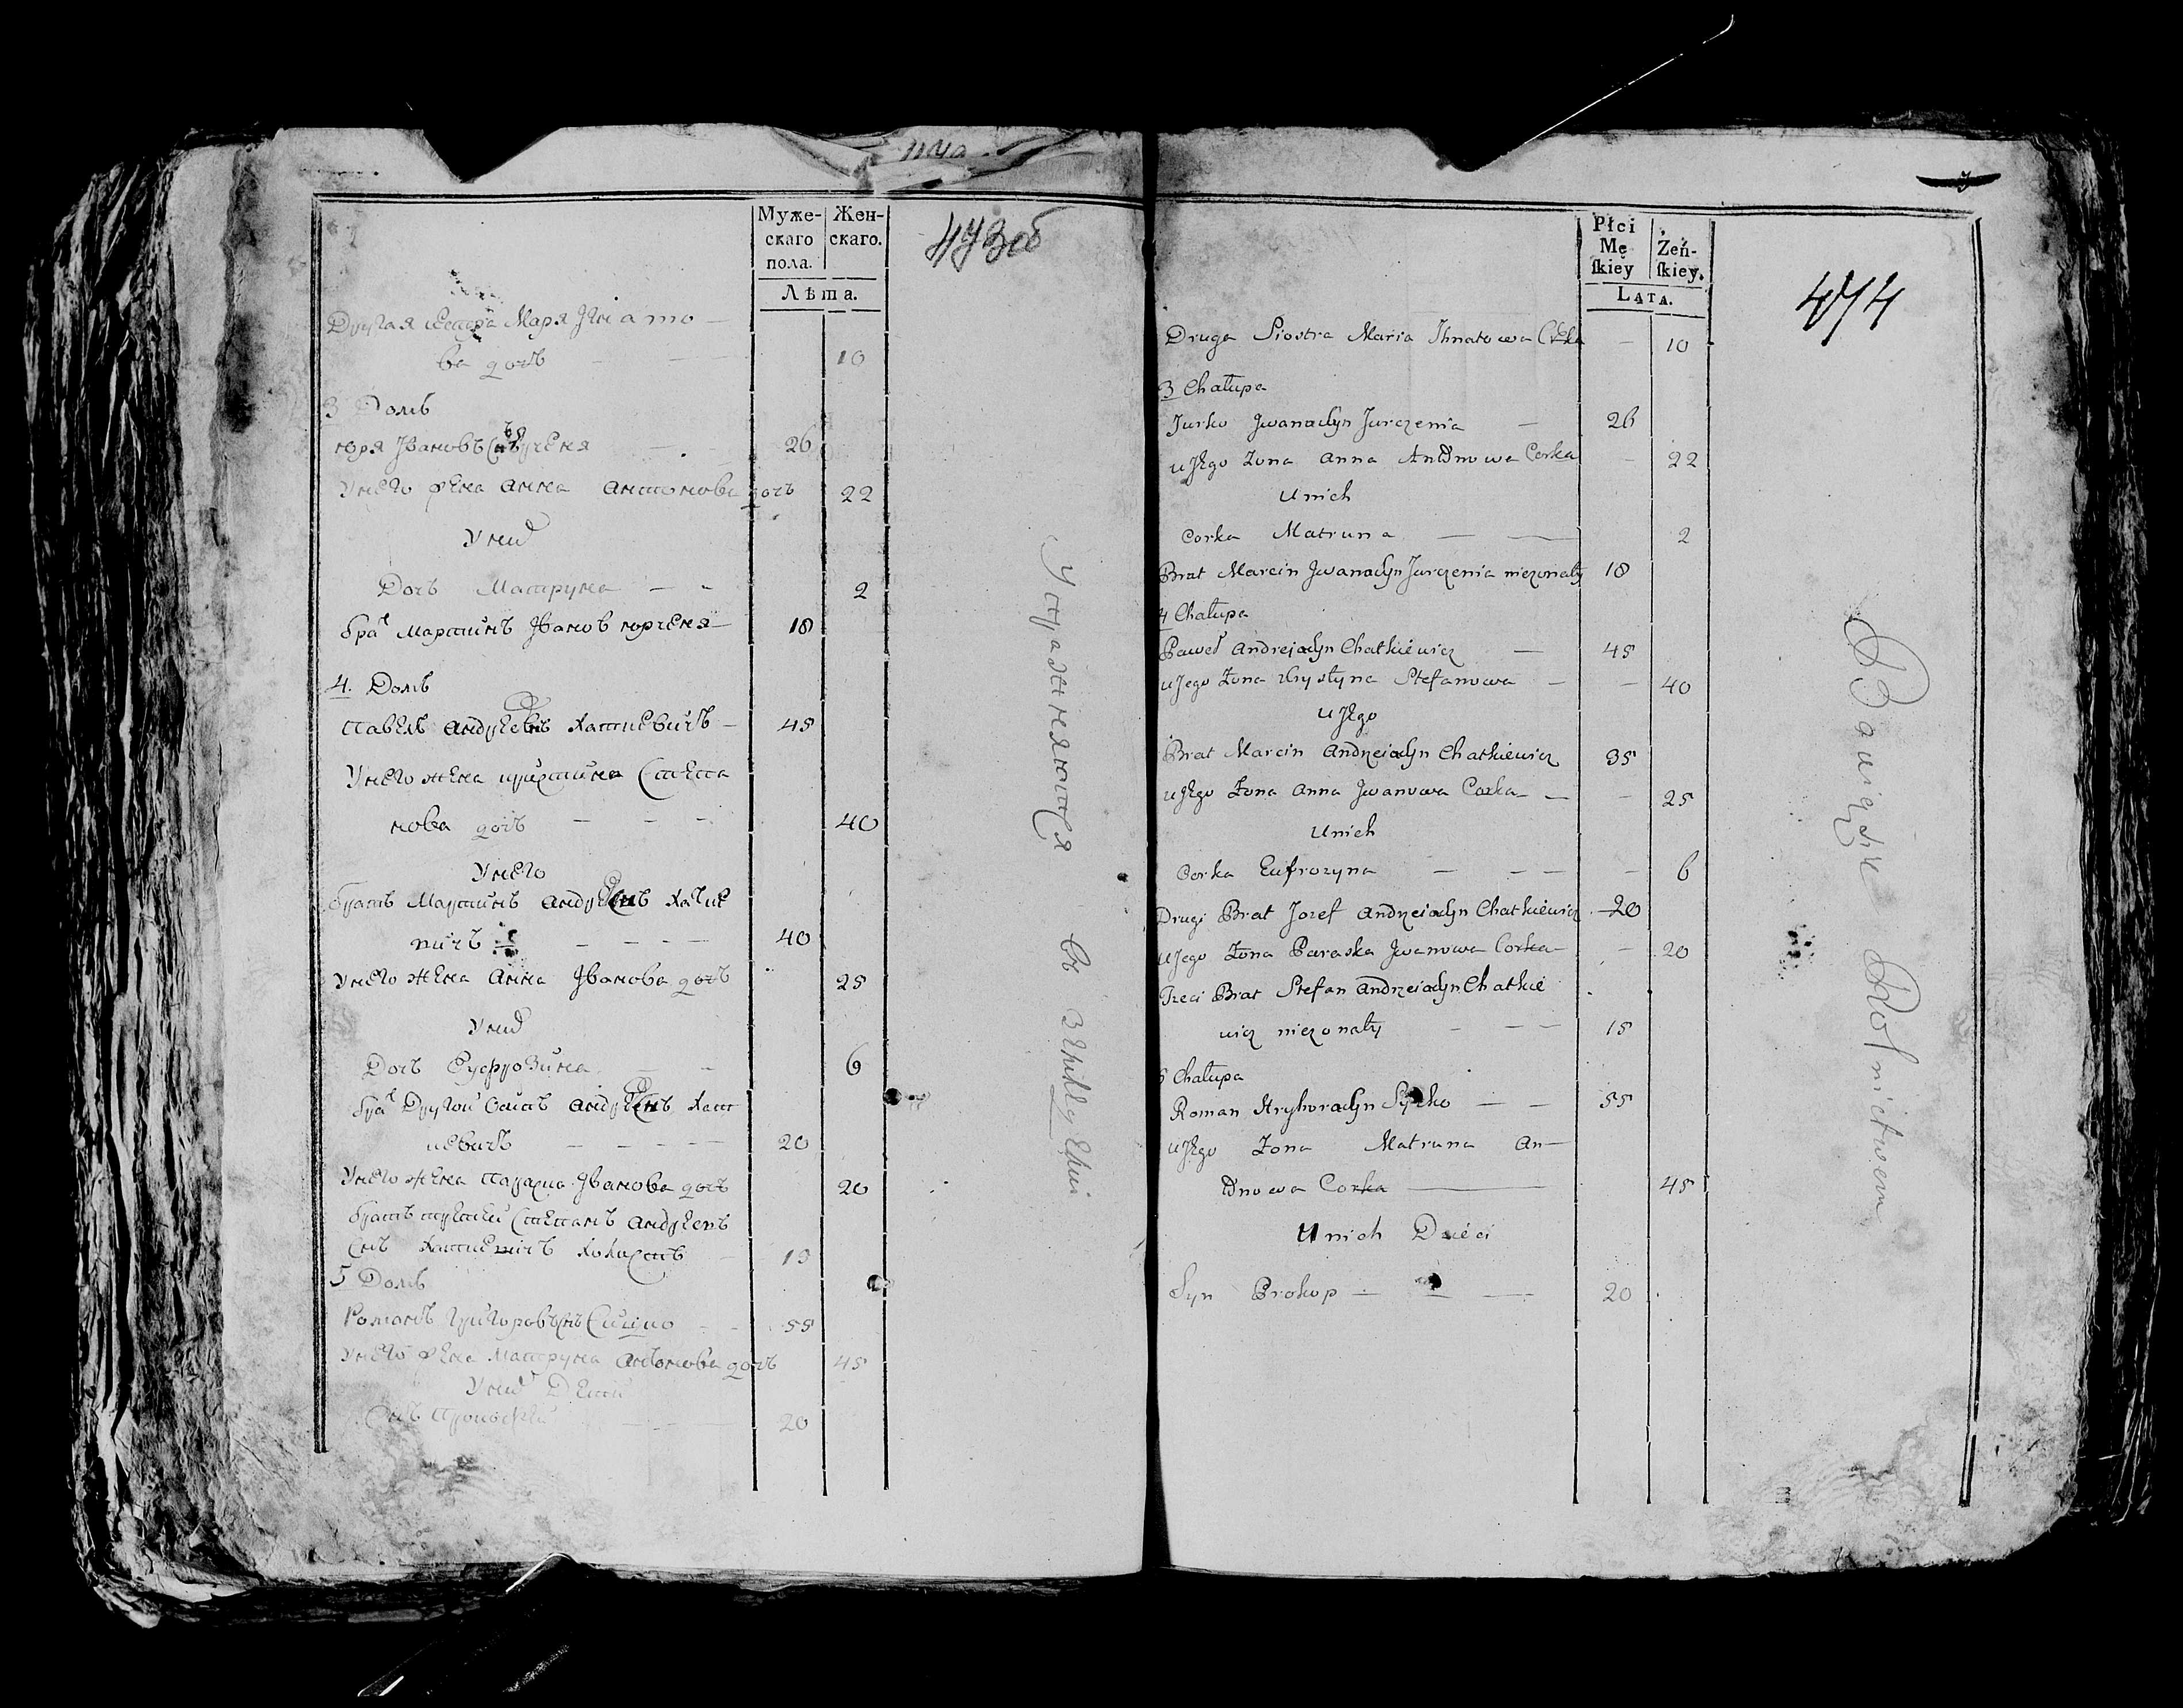 Муже-
скаго
пола.
Жен-
скаго.
Лѣта.
473 об
Другая сестра Маря Игнато
ва дочь 10
3 Домъ
юря Ивановъ Снъ юрченя 26
у него жена Анна Антонова дочь 22
у них
Дочь Матруна 2
брат Мартинъ Иванов юрченя 18
4. Домъ
Павелъ Андреевъ Хаткевичъ 45
у него жена христина Степа
нова дочь 40
у него
братъ Мартинъ Андреевъ Хатке
вичъ 40
у него жена Анна Иванова дочь 25
у них
Дочь Еуфрозина 6
брат Другой Андреевъ Хат
кевичъ 20
у него жена Параска Иванова дочь 20
братъ третей Степанъ Андреевъ
Снъ Хаткевичъ холостъ
5 Домъ
Романъ Григоровъ Снъ Сычко 55
у него жена Матруна Антонова дочь 45
у них Дети
Снъ 20
Упражняются в земледелии
Płci
Mę
ſkiey
Zeń-
ſkiey.
Lata.
474
Druga Siostra Maria Ihnatowa Corka — 10
3 Chałupa
Jurko JwanaSyn Jurczenia — 26
u Jego Zona Anna Antonowa Corka — 22
u nich
Corka Matruna — 2
Brat Marcin JwanaSyn Jurczenia niezonaty 18
4 Chałupa
Paweł AndrejaSyn Chatkiewicz — 45
u Jego Zona Chrystyna Stefanowa — 40
u Jego
Brat Marcin AndrzeiaSyn Chatkiewicz 35
u Jego Zona Anna Jwanowa Corka — 25
u nich
Corka Eufrozyna — 6
Drugi Brat Jozef AndrzeiaSyn Chatkiewicz 20
u Jego Zona Paraska Jwanowa Corka — 20
Trzeci Brat Stefan AndrzeiaSyn Chatkie
wicz niezonaty — 15
5 Chałupa
Roman HryhoraSyn Syczko — 55
u Jego Zona Matruna An—
tonowa Corka — 45
u nich Dzieci
Syn Prokop — 20
Bawią Się Rolnictwem